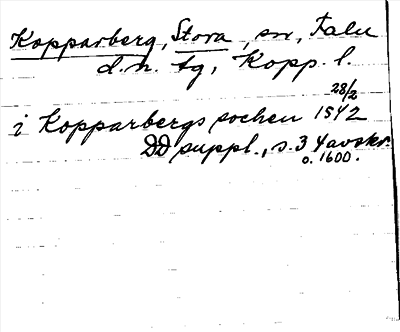 Kopparberg, Stora, sn, Falu
d.n. tg, Kopp. l.
28/2
i Kopparbergs sochen 1542
DD suppl., s. 34 avskr.
o. 1600.